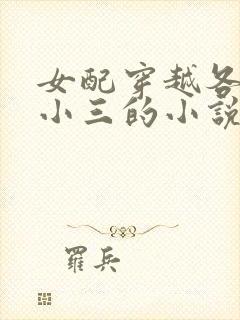 女配穿越各
小三的小說
羅兵